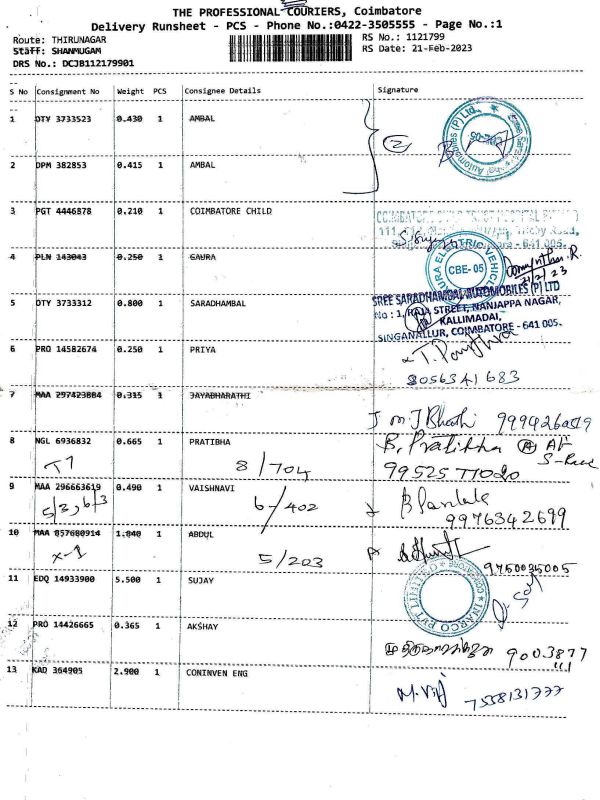 THE PROFESSIONAL COURIERS, Coimbatore
Delivery Runsheet - PCS - Phone No.:0422-3505555 - Page No.:1
Route: THIRUNAGAR
RS No.: 1121799
Staff: SHANMUGAM
RS Date: 21-Feb-2023
DRS No.: DCJB112179901
S No Consignment No Weight PCS Consignee Details Signature
1 DTY 3733523 0.430 1 AMBAL
2
2 DPM 382853 0.415 1 AMBAL
3 PGT 4446878 0.210 1 COIMBATORE CHILD
4 PLN 143043 0.250 1 GAURA
CBE-05
21/2/23
5 DTY 3733312 0.800 1 SARADHAMBAL
SREE SARADHAMBAL AUTOMOBILES (P) LTD
No : 1, RAJA STREET, NANJAPPA NAGAR,
KALLIMADAI,
SINGANALLUR, COIMBATORE - 641 005.
6 PRO 14582674 0.250 1 PRIYA
8056341683
7 MAA 297423884 0.315 1 JAYABHARATHI
8 NGL 6936832 0.665 1 PRATIBHA
B. Pratibha
T7 8/704 9952577020
9 MAA 296663619 0.490 1 VAISHNAVI
5/3, 6/3 6/402
9976342699
10 MAA 857680914 1.840 1 ABDUL
x-1 5/203
9750035005
11 EDQ 14933900 5.500 1 SUJAY
12 PRO 14426665 0.365 1 AKSHAY
9003877
111
13 KAD 364905 2.900 1 CONINVEN ENG
7558131777